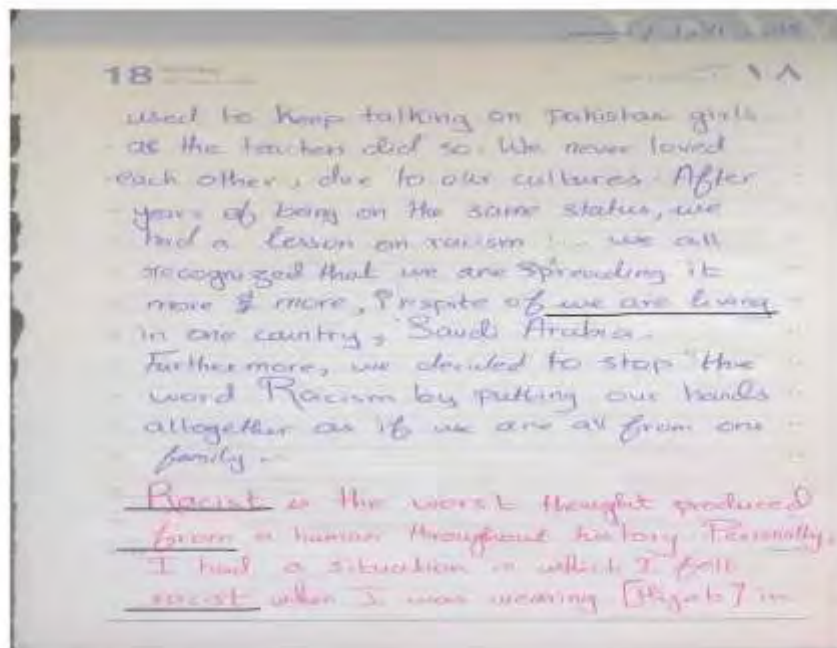 18
١٨
used to keep talking on Pakistan girls
as the teachers did so. We never loved
each other, due to our cultures. After
years of being on the same status, we
had a lesson on racism! .. we all
recognized that we are spreading it
more & more, Inspite of we are living
in one country, "Saudi Arabia.
Furthermore, we decided to stop "the
word Racism by putting our hands
altogether as if we are all from one
family..
Racist is the worst thought produced
from a human throughout history. Personally,
I had a situation in which I felt
racist when I was wearing [Hijab] in